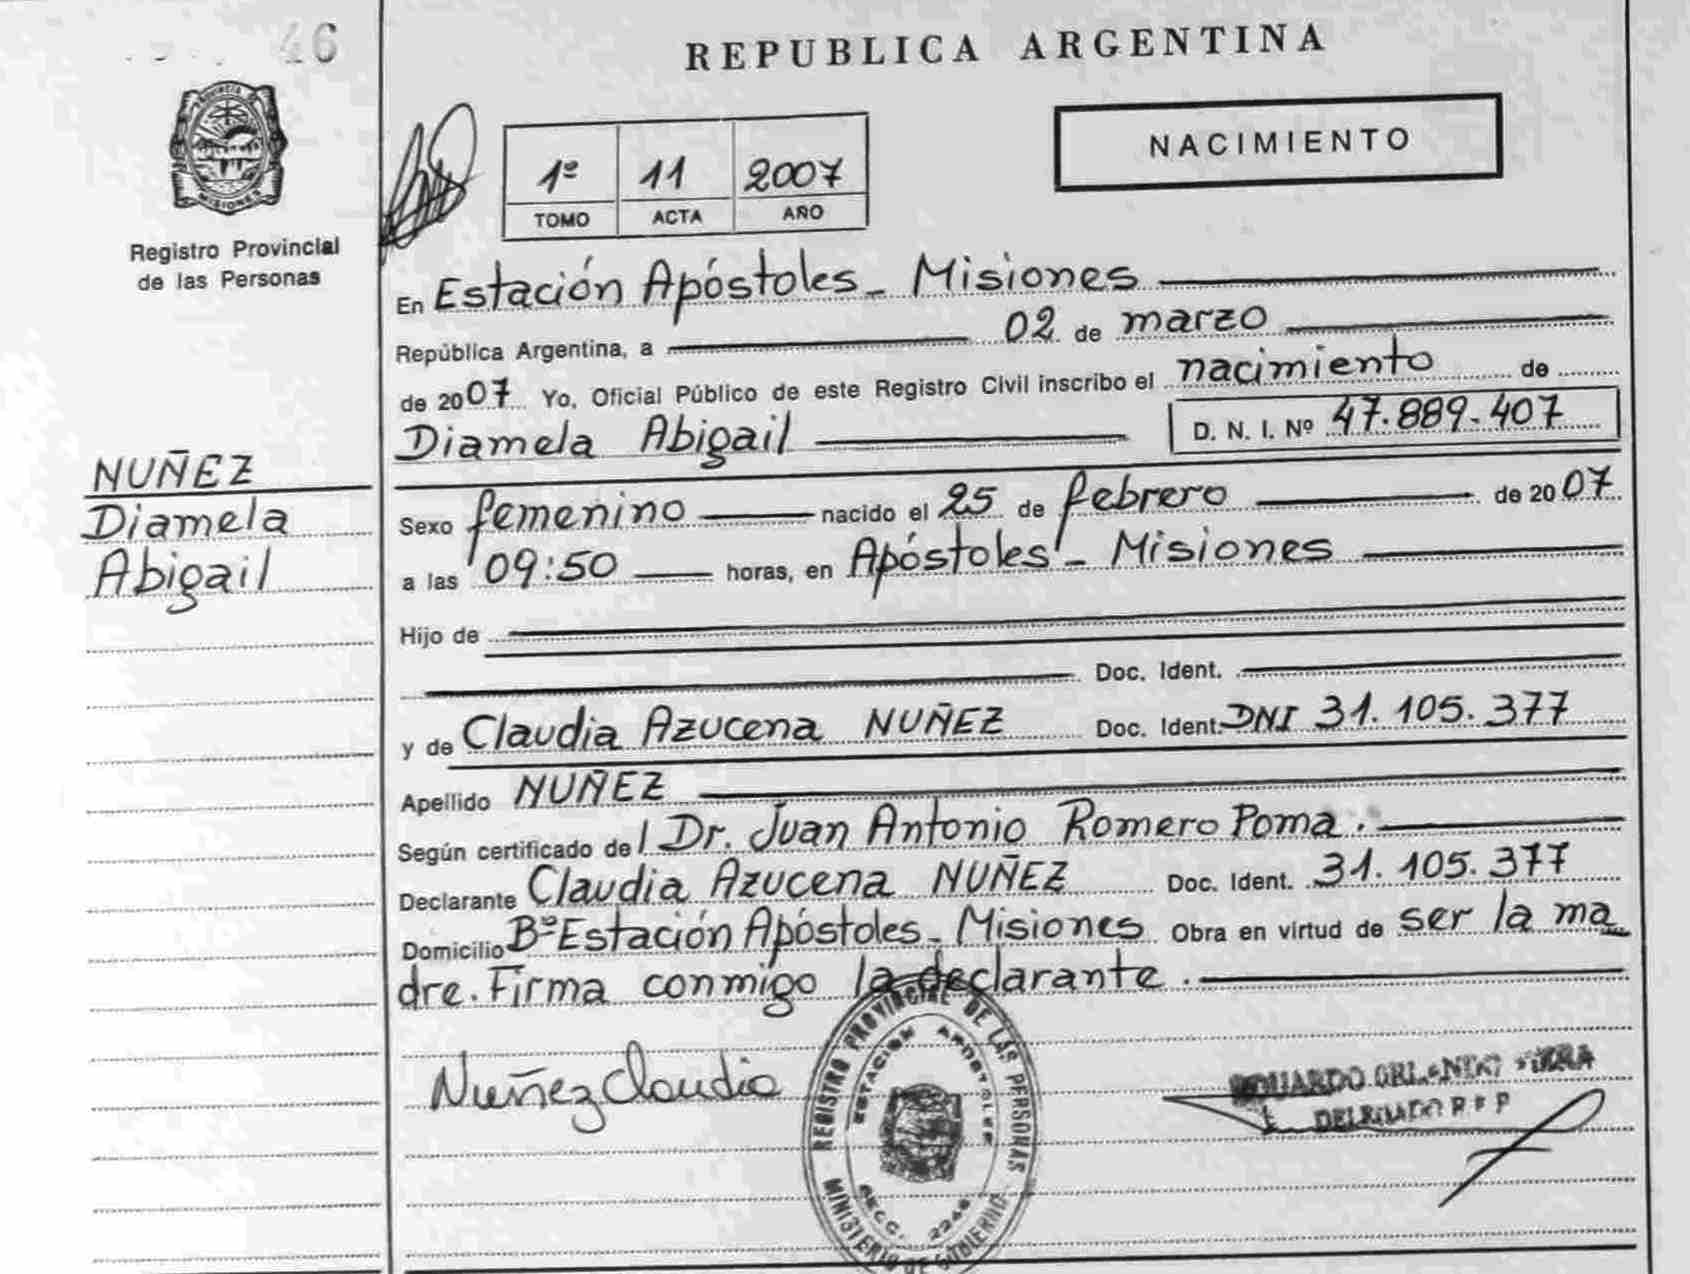 46
REPUBLICA ARGENTINA
PROVINCIA DE
MISIONES
Registro Provincial
de las Personas
1º 11 2007
TOMO ACTA AÑO
NACIMIENTO
En Estación Apóstoles - Misiones
República Argentina, a 02 de marzo
de 2007 Yo, Oficial Público de este Registro Civil inscribo el nacimiento de
Diamela Abigail D. N. I. Nº 47.889.407
NUÑEZ
Diamela
Abigail
Sexo femenino nacido el 25 de febrero de 2007
a las 09:50 horas, en Apóstoles - Misiones
Hijo de
Doc. Ident.
y de Claudia Azucena NUÑEZ Doc. Ident. DNI 31.105.377
Apellido NUÑEZ
Según certificado del Dr. Juan Antonio Romero Poma.
Declarante Claudia Azucena NUÑEZ Doc. Ident. 31.105.377
Domicilio Bº Estación Apóstoles - Misiones Obra en virtud de ser la ma
dre. Firma conmigo la declarante.
Nuñez Claudia
REGISTRO PROVINCIAL DE LAS PERSONAS
ESTACION APOSTOLES
SECC. 2246
MINISTERIO DE GOBIERNO
EDUARDO ORLANDO
DELEGADO R P P